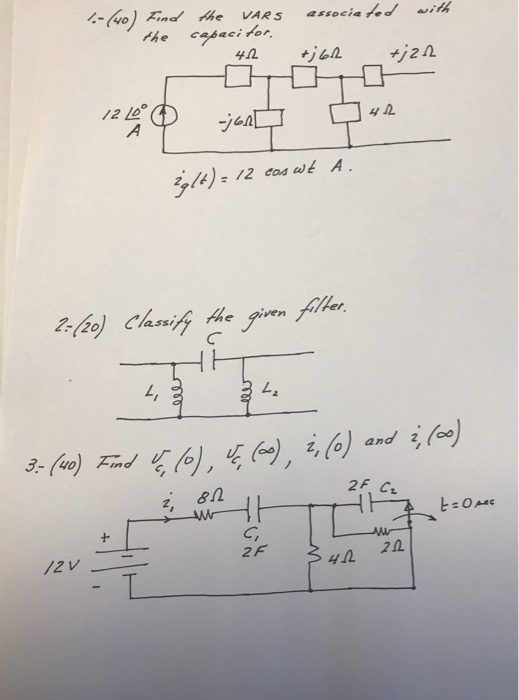 1.- (40) Find the VARS associated with
the capacitor.
4Ω +j6Ω +j2Ω
12 ∠0°
A
-j6Ω 4Ω
ig(t) = 12 cos ωt A.
2.- (20) Classify the given filter.
C
L₁ L₂
3.- (40) Find Vc₁(0), Vc₁(∞), i₁(0) and i₁(∞)
i₁ 8Ω 2F C₂
t=0 sec
+
C₁
2F
12V
4Ω 2Ω
-